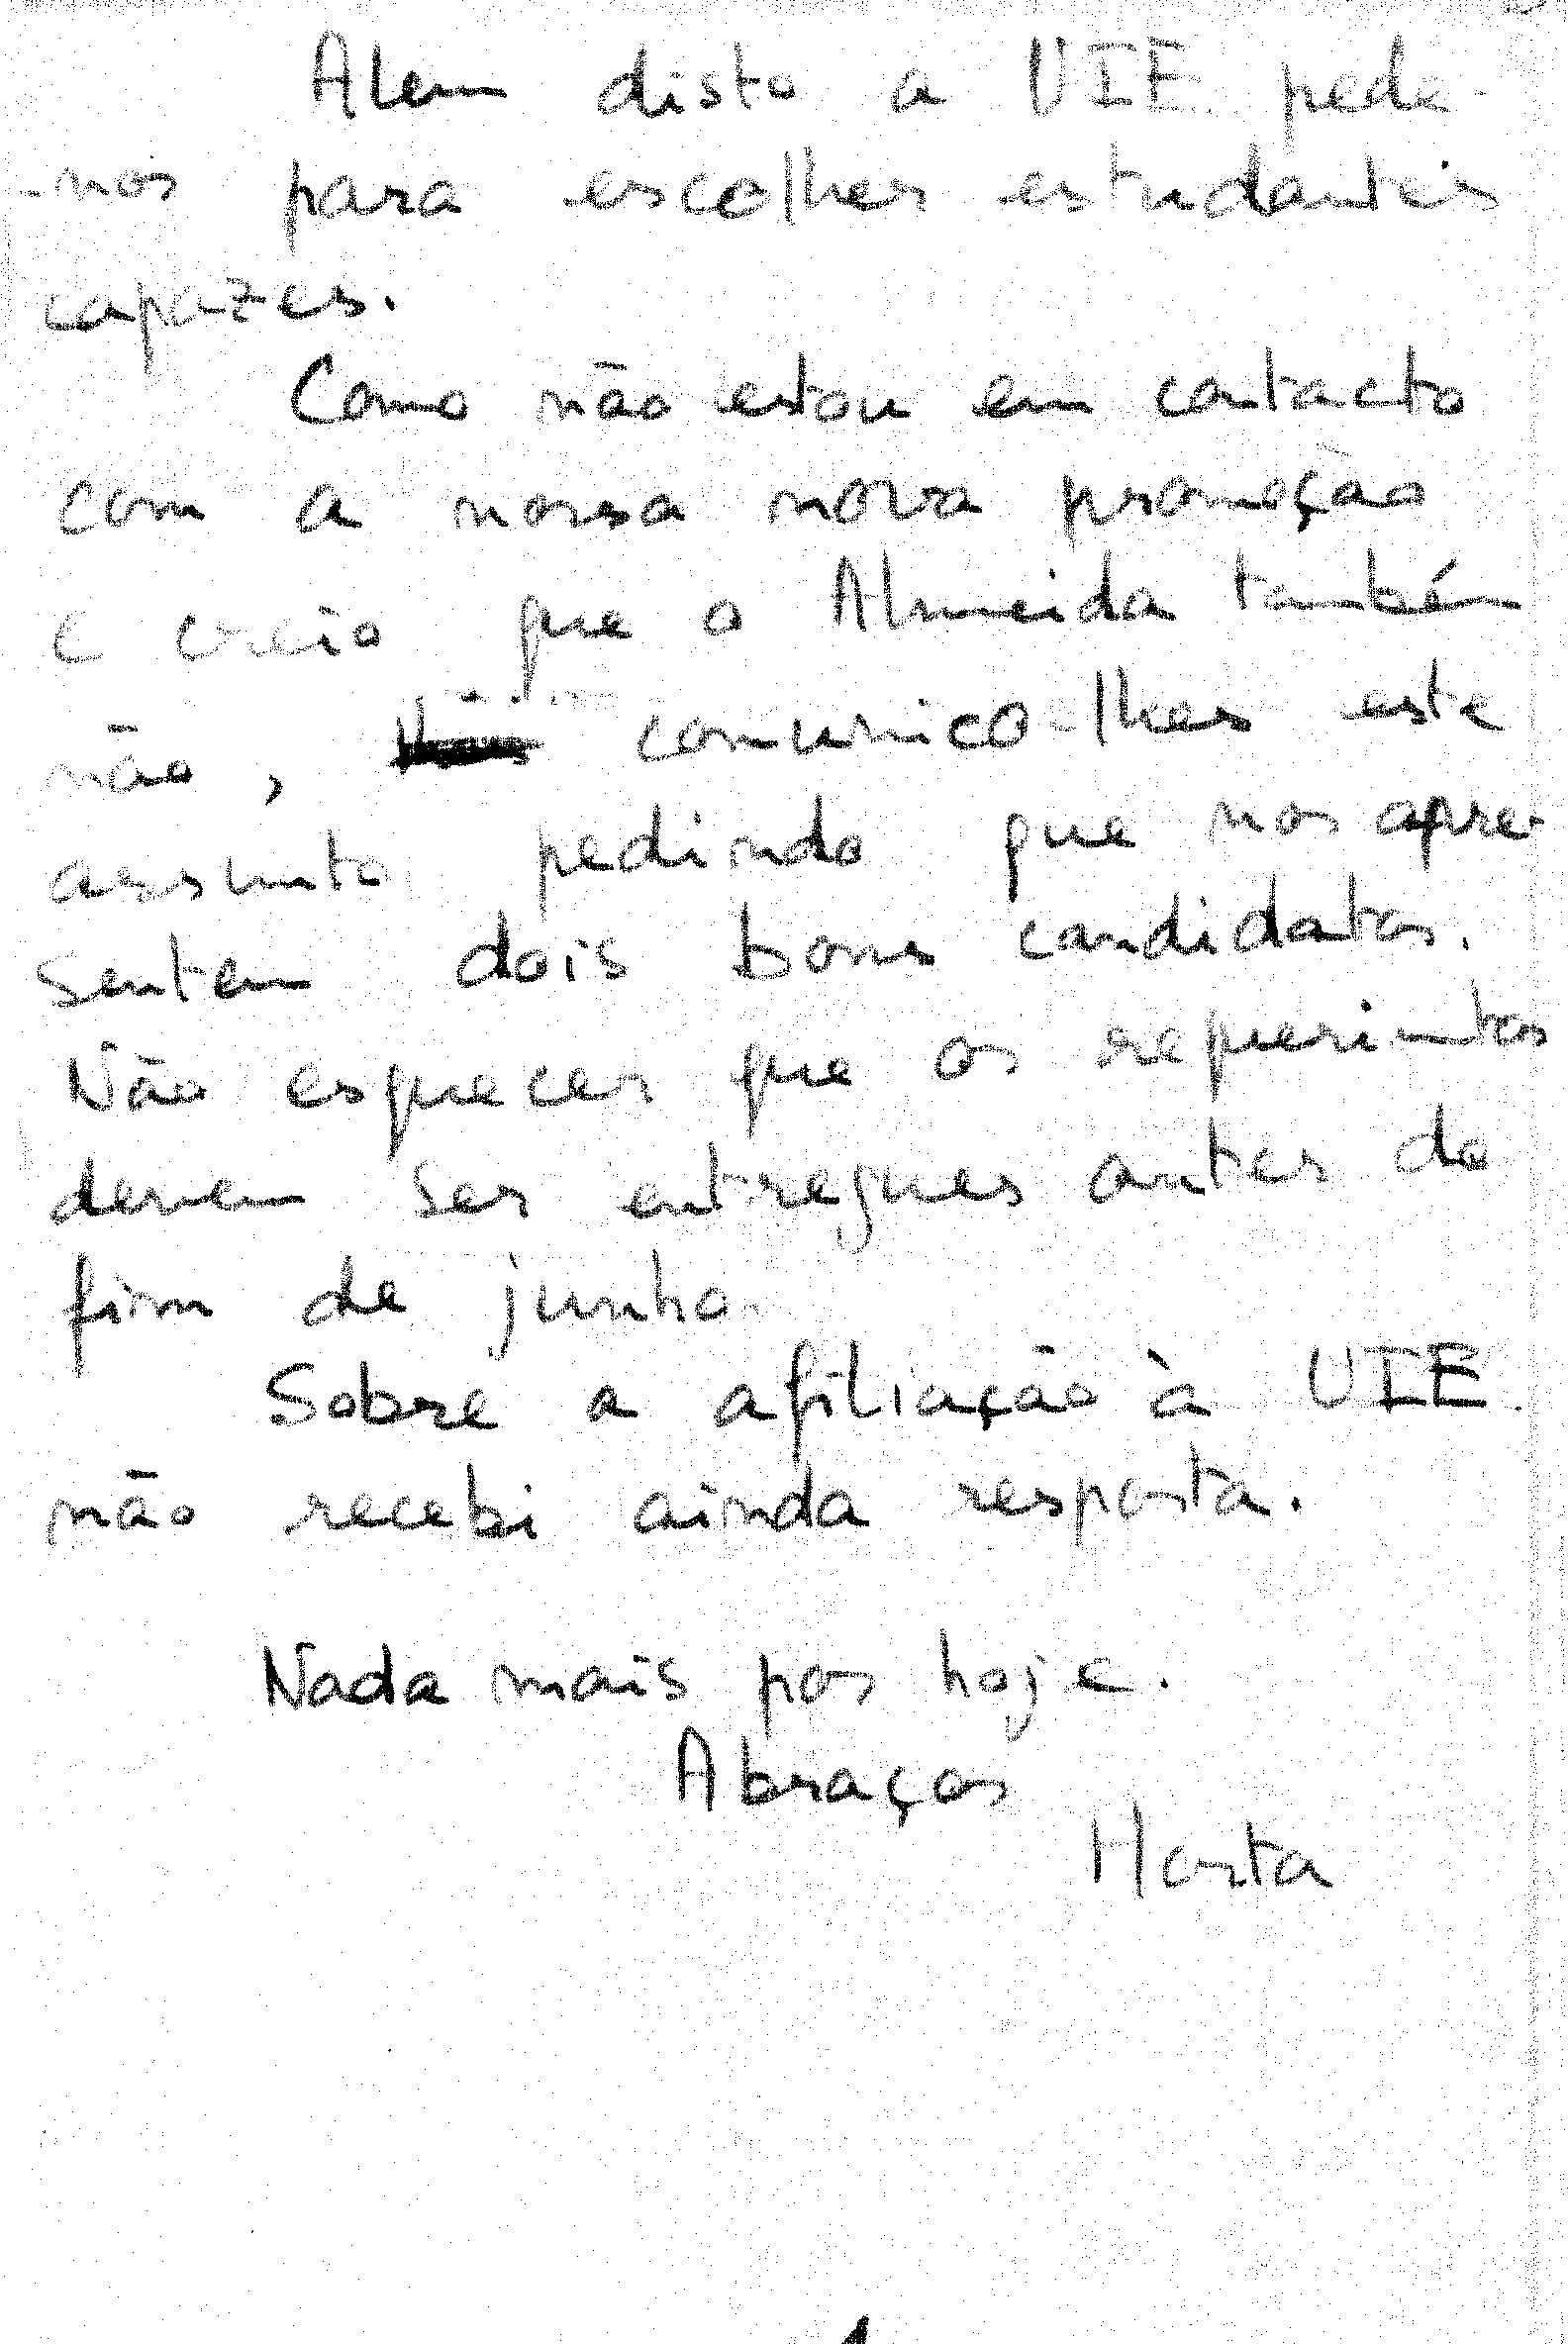 Alem disto a UIE pede-
-nos para escolher estudantes
capazes.
Como não estou em contacto
com a nossa nova promoção
e creio que o Almeida também
não, comunico-lhes este
assunto pedindo que nos apre-
sentem dois bons candidatos.
Não esquecer que os requerimtos
devem ser entregues antes do
fim de junho.
Sobre a afiliação à UIE
não recebi ainda resposta.
Nada mais por hoje.
Abraços
Horta